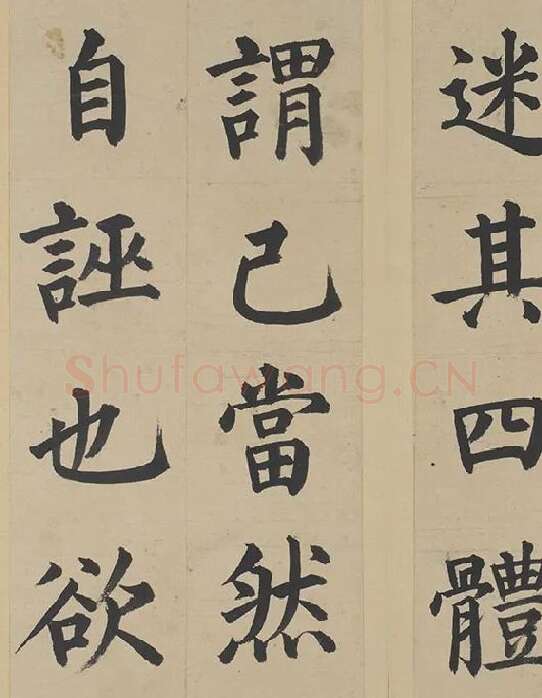 迷其四體
謂己當然
自誣也欲
Shufawang.CN